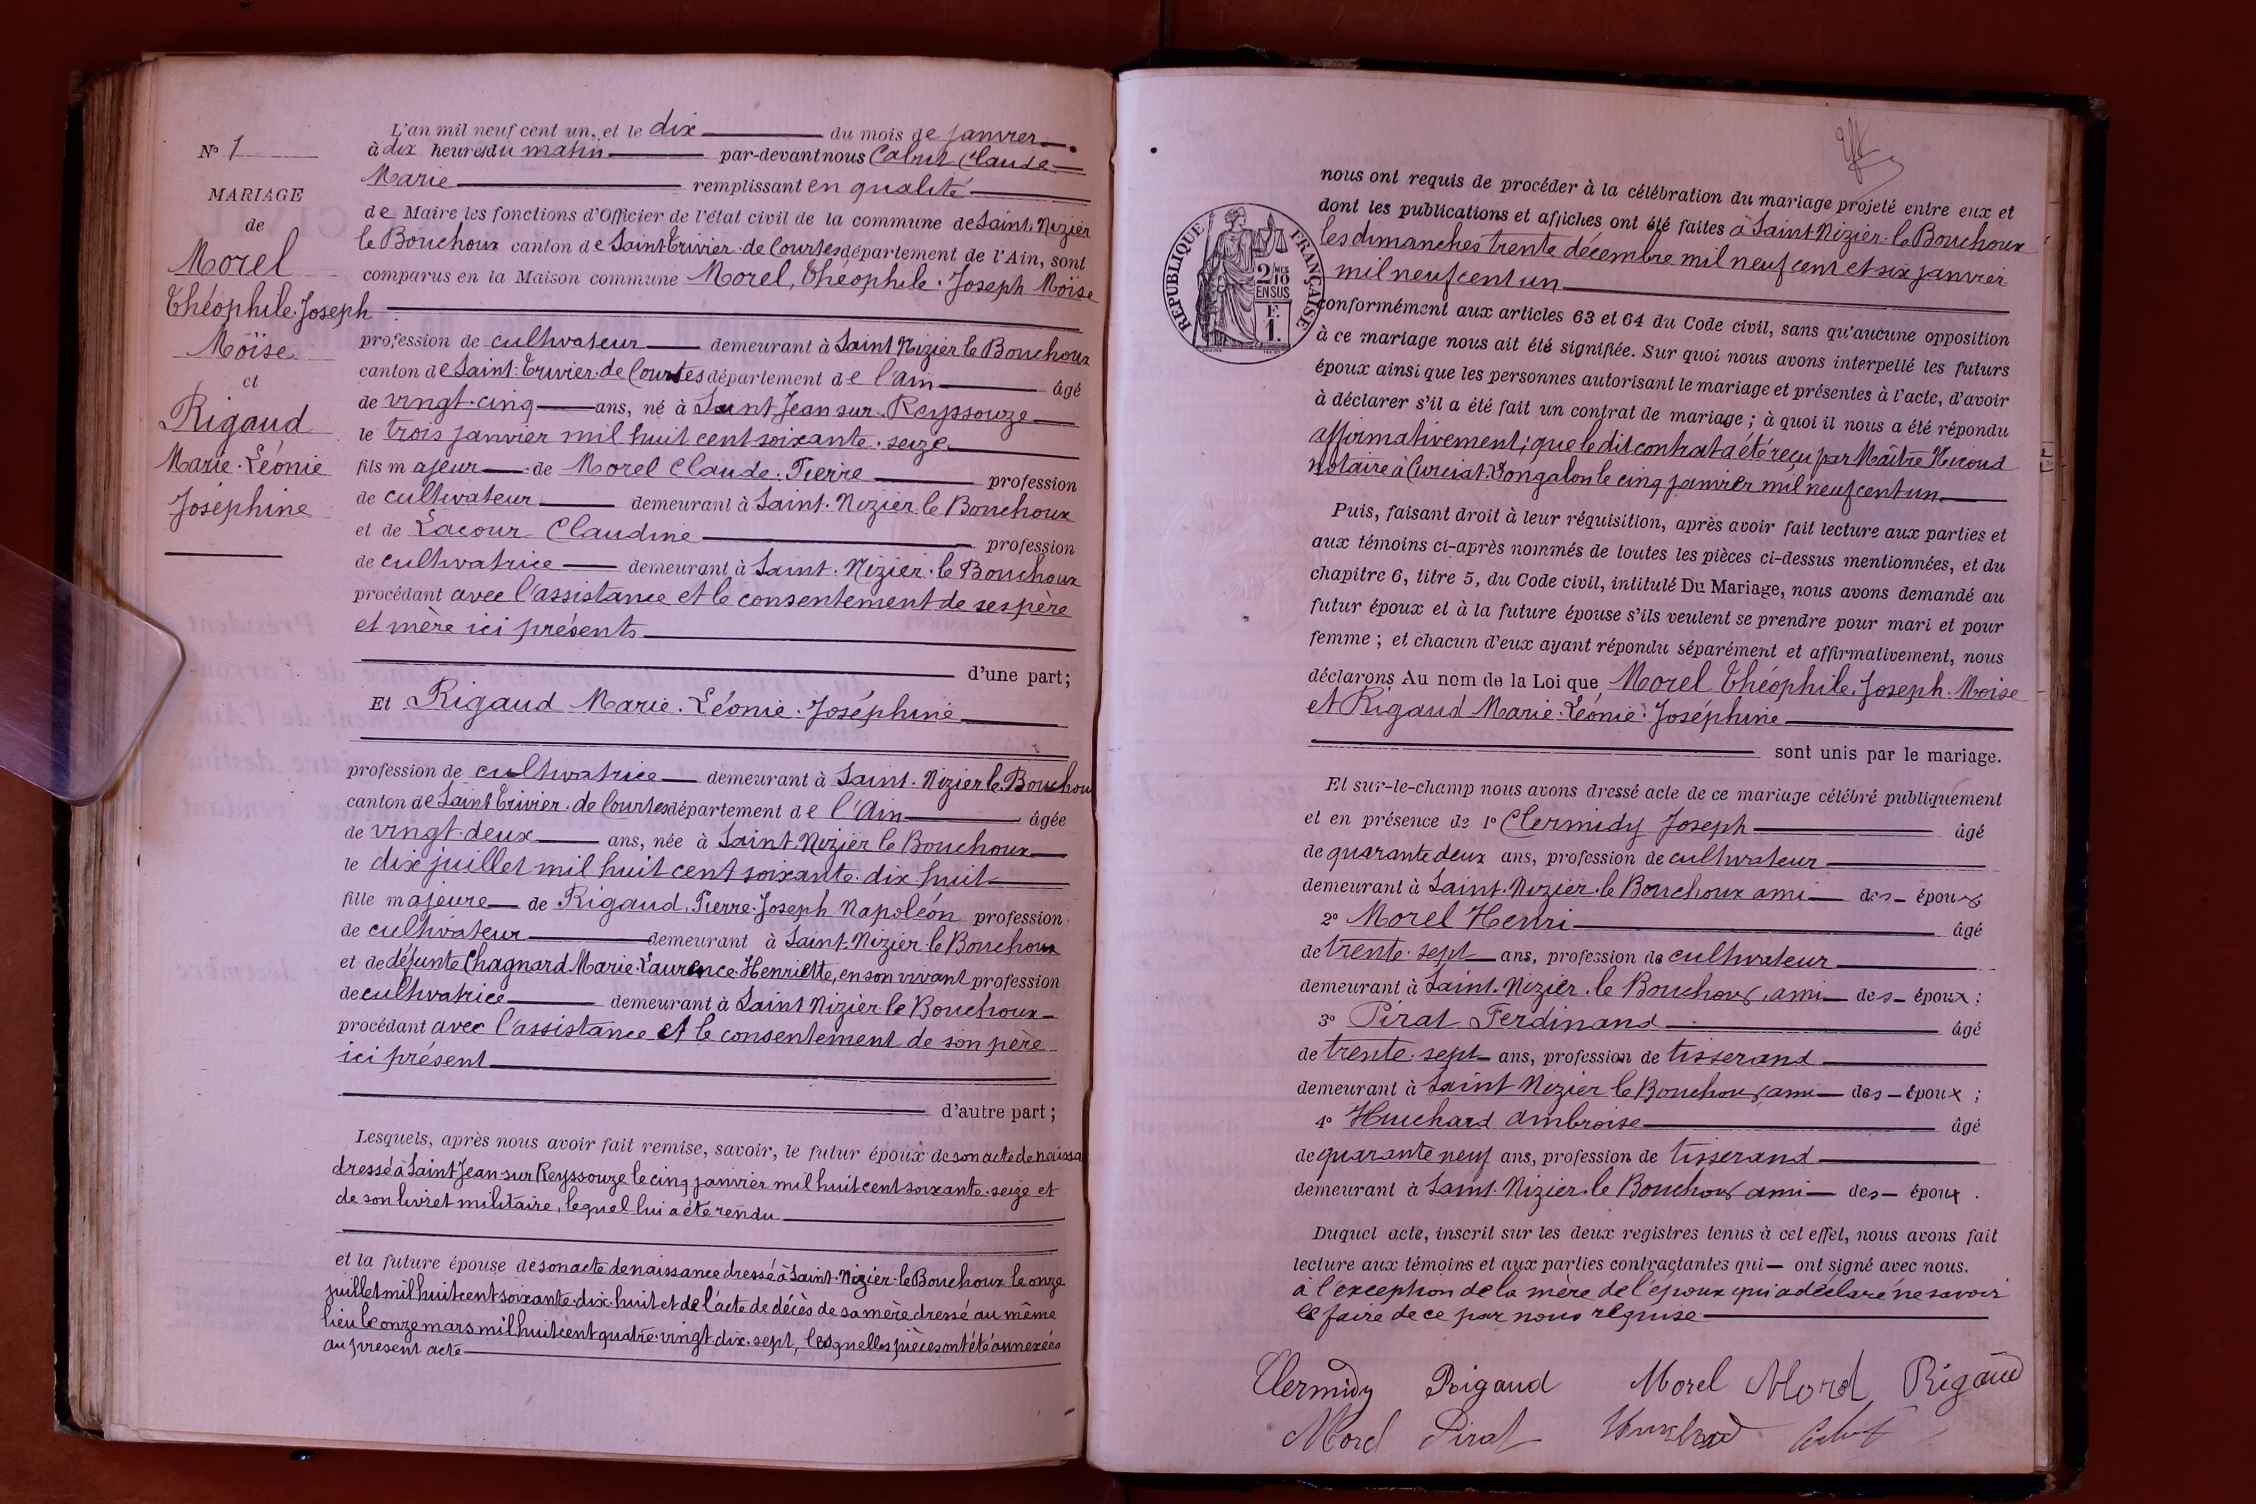 N° 1
MARIAGE
de
Morel
Théophile. Joseph
Moïse
et
Rigaud
Marie. Léonie
Joséphine
L'an mil neuf cent un, et le dix du mois de janvier
à dix heures du matin par-devant nous Claude
Marie remplissant en qualité
de Maire les fonctions d'Officier de l'état civil de la commune de Saint. Nizier
le Bouchoux canton de Saint Trivier. de Courtes département de l'Ain, sont
comparus en la Maison commune Morel, Théophile. Joseph Moïse
profession de cultivateur demeurant à Saint Nizier le Bouchoux
canton de Saint. Trivier. de Courtes département de l'Ain âgé
de vingt. cinq ans, né à Saint Jean sur Reyssouze
le trois janvier mil huit cent soixante. seize
fils majeur de Morel Claude. Pierre profession
de cultivateur demeurant à Saint. Nizier le Bouchoux
et de Lacour Claudine profession
de cultivatrice demeurant à Saint. Nizier. le Bouchoux
procédant avec l'assistance et le consentement de ses père
et mère ici présents
d'une part;
Et Rigaud Marie. Léonie. Joséphine
profession de cultivatrice demeurant à Saint. Nizier le Bouchou
canton de Saint Trivier. de Courtes département de l'Ain âgée
de vingt. deux ans, née à Saint. Nizier le Bouchoux
le dix juillet mil huit cent soixante. dix. huit
fille majeure de Rigaud, Pierre. Joseph Napoléon profession
de cultivateur demeurant à Saint. Nizier. le Bouchoux
et de défunte Chagnard Marie. Laurence. Henriette, en son vivant profession
de cultivatrice demeurant à Saint Nizier le Bouchoux
procédant avec l'assistance et le consentement de son père
ici présent
d'autre part;
Lesquels, après nous avoir fait remise, savoir, le futur époux de son acte de naissa
dressé à Saint Jean sur Reyssouze le cinq janvier mil huit cent soixante. seize et
de son livret militaire, lequel lui a été rendu
et la future épouse de son acte de naissance dressé à Saint. Nizier. le Bouchoux le onze
juillet mil huit cent soixante. dix. huit et de l'acte de décès de sa mère dressé au même
lieu le onze mars mil huit cent quatre. vingt dix. sept, lesquelles pièces ont été annexées
au présent acte
RÉPUBLIQUE FRANÇAISE
2/10 MES EN SUS
F. 1.
nous ont requis de procéder à la célébration du mariage projeté entre eux et
dont les publications et affiches ont été faites à Saint Nizier. le Bouchoux
les dimanches trente décembre mil neuf cent et six janvier
mil neuf cent un
conformément aux articles 63 et 64 du Code civil, sans qu'aucune opposition
à ce mariage nous ait été signifiée. Sur quoi nous avons interpellé les futurs
époux ainsi que les personnes autorisant le mariage et présentes à l'acte, d'avoir
à déclarer s'il a été fait un contrat de mariage; à quoi il nous a été répondu
affirmativement; que le dit contrat a été reçu par Maître
notaire à Curciat. Dongalon le cinq janvier mil neuf cent un
Puis, faisant droit à leur réquisition, après avoir fait lecture aux parties et
aux témoins ci-après nommés de toutes les pièces ci-dessus mentionnées, et du
chapitre 6, titre 5, du Code civil, intitulé Du Mariage, nous avons demandé au
futur époux et à la future épouse s'ils veulent se prendre pour mari et pour
femme; et chacun d'eux ayant répondu séparément et affirmativement, nous
déclarons Au nom de la Loi que Morel Théophile. Joseph. Moïse
et Rigaud Marie. Léonie. Joséphine
sont unis par le mariage.
Et sur-le-champ nous avons dressé acte de ce mariage célébré publiquement
et en présence de 1° Clermidy Joseph âgé
de quarante deux ans, profession de cultivateur
demeurant à Saint. Nizier. le Bouchoux ami des époux
2° Morel Henri âgé
de trente. sept ans, profession de cultivateur
demeurant à Saint. Nizier. le Bouchoux, ami des époux;
3° Pirat Ferdinand âgé
de trente. sept ans, profession de tisserand
demeurant à Saint Nizier le Bouchoux, ami des époux;
4° Huchard Ambroise âgé
de quarante neuf ans, profession de tisserand
demeurant à Saint. Nizier. le Bouchoux ami des époux.
Duquel acte, inscrit sur les deux registres tenus à cet effet, nous avons fait
lecture aux témoins et aux parties contractantes qui ont signé avec nous.
à l'exception de la mère de l'époux qui a déclaré ne savoir
le faire de ce par nous requise
Clermidy Rigaud Morel Morel Rigaud
Morel Pirat Huchard